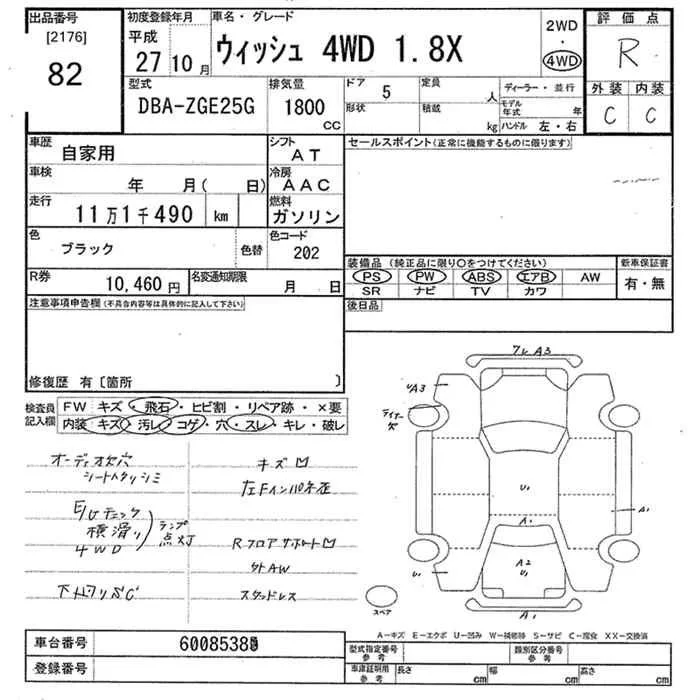 出品番号 [2176] 82
初度登録年月 平成 27 10 月
車名・グレード ウィッシュ 4WD 1.8X
2WD ・ 4WD
評価点 R
外装 内装
C C
型式 DBA-ZGE25G
排気量 1800 CC
ドア 5
定員 人
形状
積載 kg
ディーラー・並行
モデル年式 年
ハンドル 左・右
車歴 自家用
シフト AT
セールスポイント(正常に機能するものに限ります)
車検 年 月( 日)
冷房 AAC
走行 11万1千490 km
燃料 ガソリン
色 ブラック 色替
色コード 202
装備品(純正品に限り○をつけてください)
新車保証書
PS PW ABS エアB AW
有・無
SR ナビ TV カワ
R券 10,460円
名変通知期限 月 日
後日品
注意事項申告欄(不具合内容等は具体的に記入して下さい)
修復歴 有〔箇所 〕
検査員記入欄
FW キズ・飛石・ヒビ割・リペア跡・×要
内装 キズ・汚レ・コゲ・穴・スレ・キレ・破レ
オーディオ欠穴
シートクッシミ
E/Gチェック
横滑り
4WD
ランプ点灯
キズ凹
Rフロアサポート凹
外AW
スタッドレス
フレ A3
U A3
ライナー欠
U1
A1
A1
A2
U1
U1
A1
スペア
A-キズ E-エクボ U-凹み W-補修跡 S-サビ C-腐食 XX-交換済
車台番号
登録番号
型式指定番号 参考
類別区分番号 参考
車庫証明用 参考
長さ cm
幅 cm
高さ cm